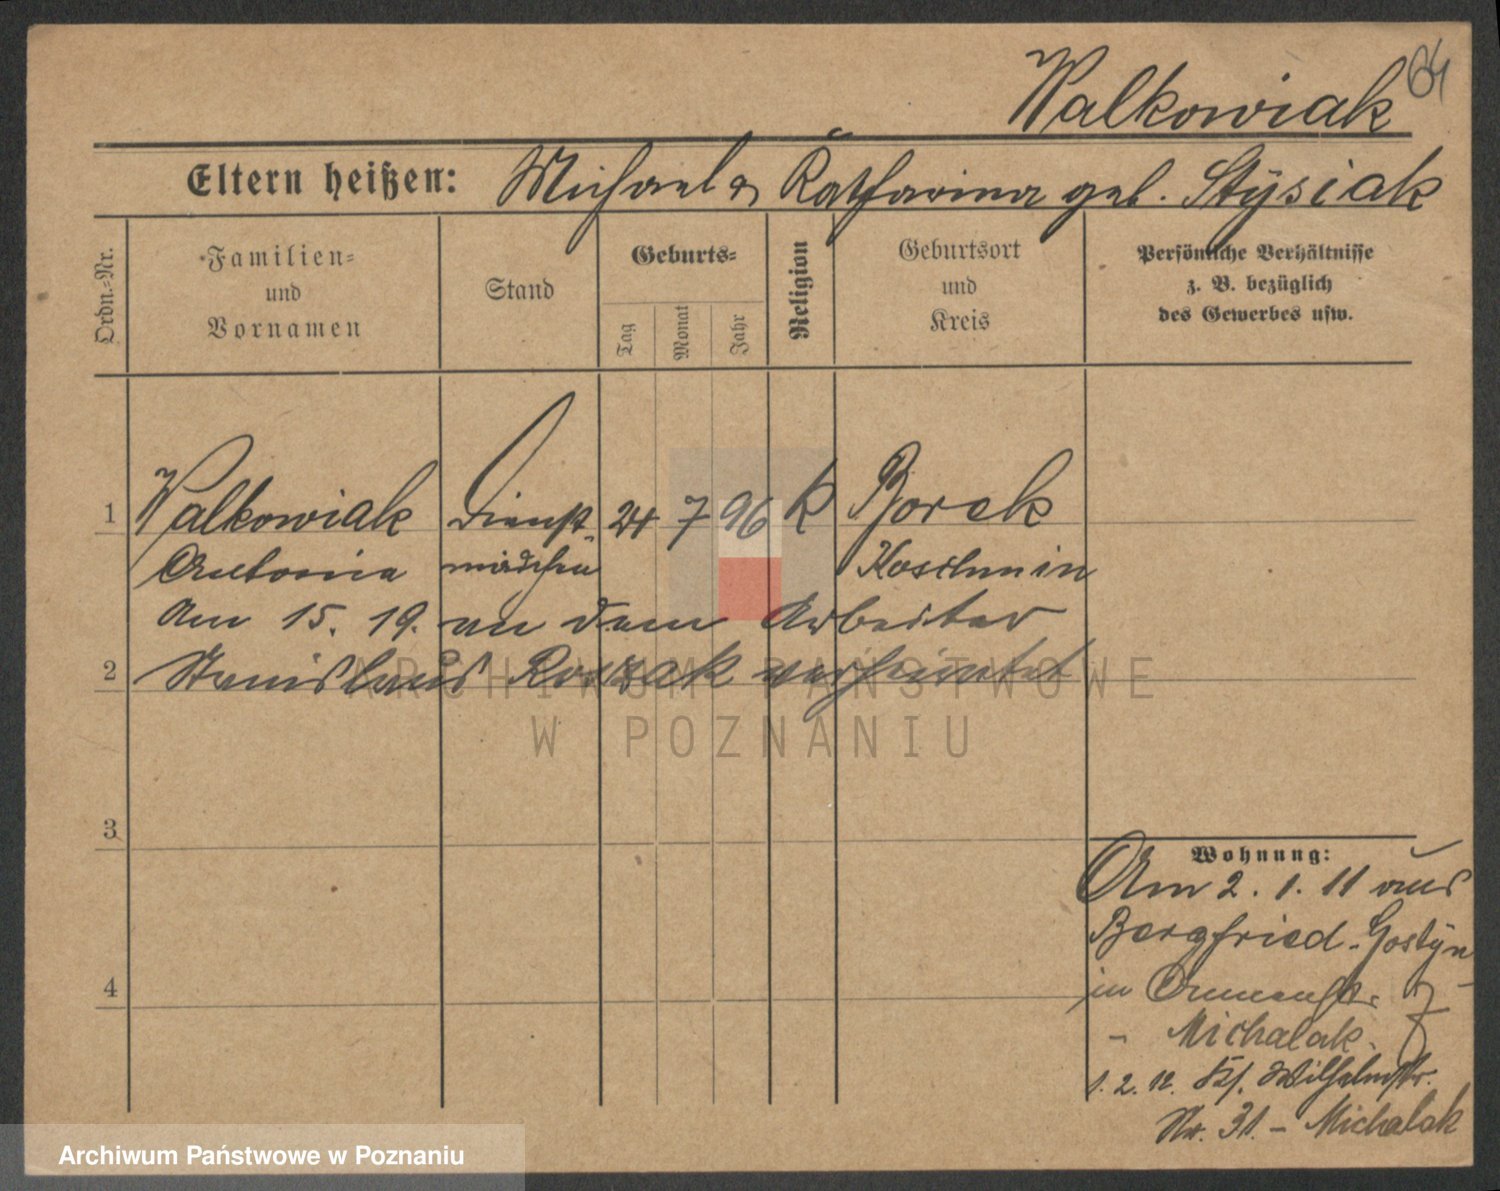 64
Walkowiak
Eltern heißen: Michael & Katharina geb. Stysiak
Ordn.-Nr.
Familien-
und
Vornamen
Stand
Geburts-
Tag
Monat
Jahr
Religion
Geburtsort
und
Kreis
Persönliche Verhältnisse
z. B. bezüglich
des Gewerbes usw.
1 Walkowiak Dienst- 24 7 96 k Borek
Antonie mädchen Koschmin
Am 15. 19. an dem Arbeiter
2 Stanislaus Roszak verheiratet
3
4
Wohnung:
Am 2. 1. 11 aus
Bergfried-Gostyn
in 7
- Michalak.
1. 2. 12. Kl. Wilhelmstr.
Nr. 31. - Michalak
ARCHIWUM PAŃSTWOWE
W POZNANIU
Archiwum Państwowe w Poznaniu